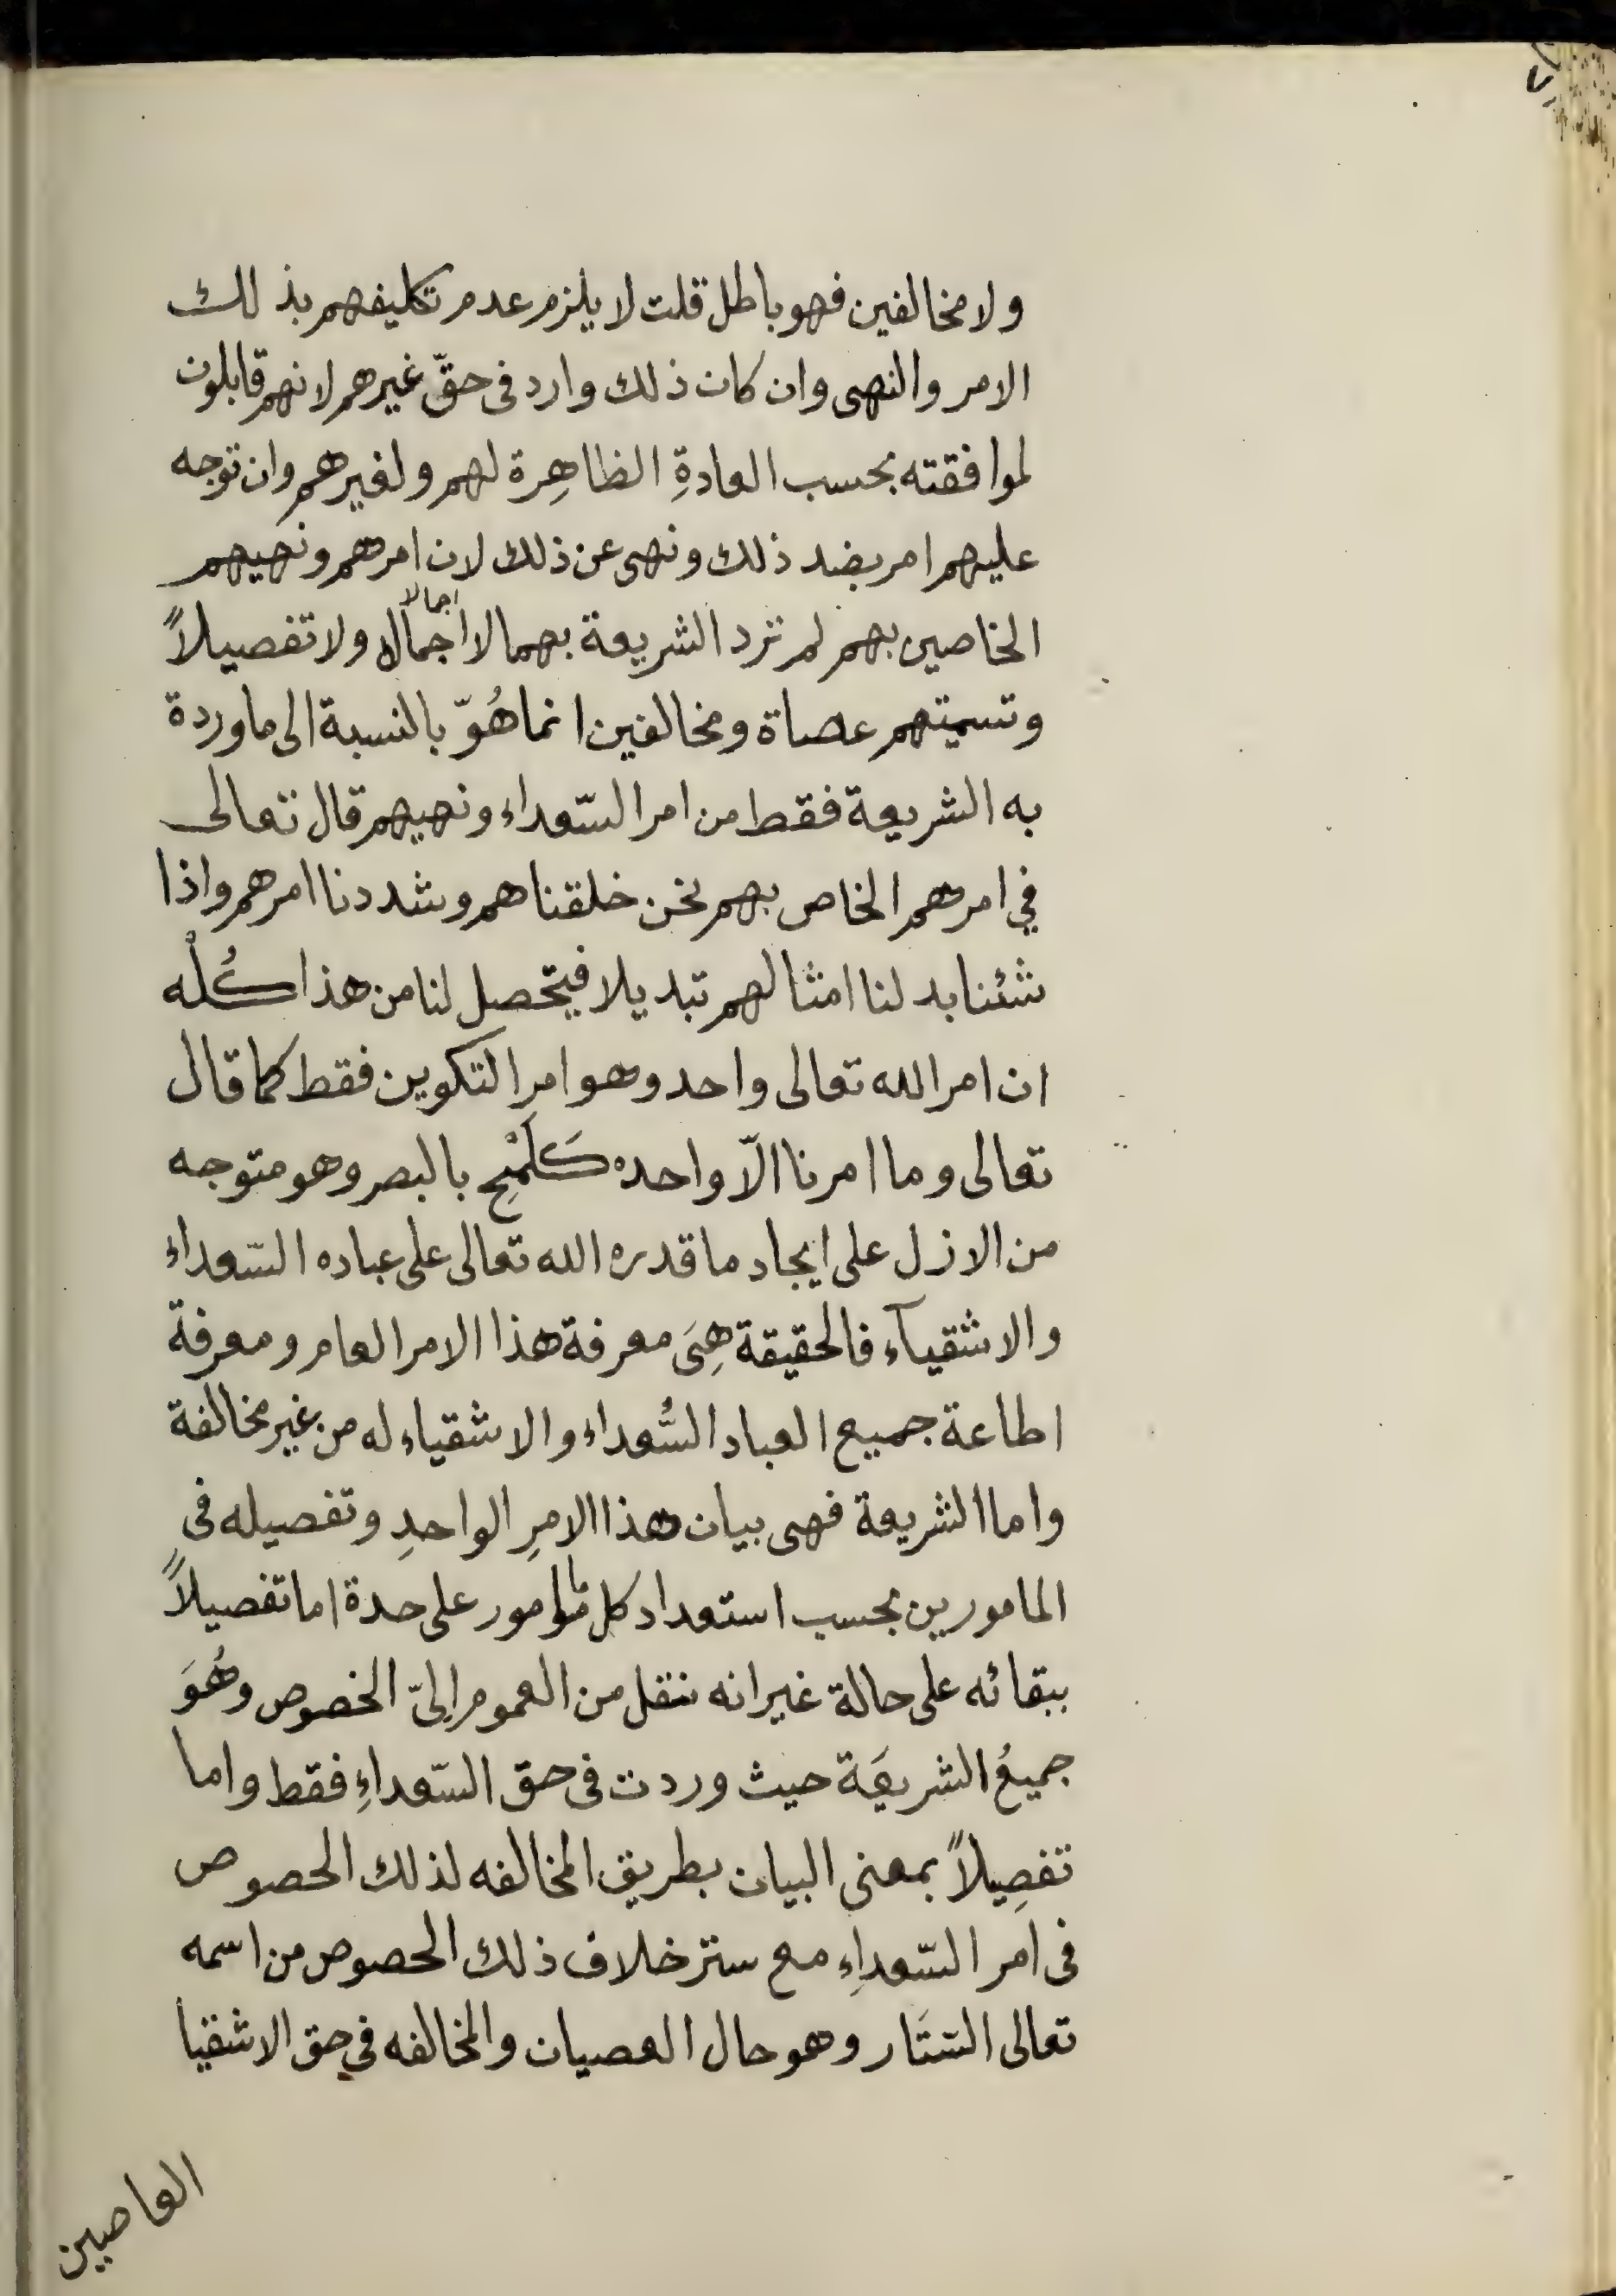 ولا مخالفين فهو باطل قلت لا يلزم عدم تكليفهم بذلك
الامر والنهى وان كان ذلك وارد فى حقّ غيرهم لانهم قابلون
لموافقته بحسب العادةِ الظاهِرة لهم ولغيرهم وان توجه
عليهم امر بضد ذلك ونهى عن ذلك لان امرهم ونهيهم
الخاصين بهم لم ترد الشريعة بهما لا اجمالا ولا تفصيلاً
اجمالا
وتسميتهم عصاة ومخالفين انما هُوّ بالنسبة الى ما وردة
به الشريعة فقط من امر السّعداء ونهيهم قال تعالى
في امرهم الخاص بهم نحن خلقناهم وشددنا امرهم واذا
شئنا بدلنا امثالهم تبديلا فيتحصل لنا من هذا كُلْه
ان امر الله تعالى واحد وهو امر التكوين فقط كما قال
تعالى وما امرنا الاّ واحده كَلَمْحِ بالبصر وهو متوجه
من الازل على ايجاد ما قدره الله تعالى على عباده السّعداء
والاشقيآء فالحقيقة هِىَ معرفة هذا الامر العام ومعرفة
اطاعة جميع العباد السُّعداء والاشقياء له من غير مخالفة
واما الشريعة فهى بيان هذا الامرِ الواحدِ وتفصيله فى
المامورين بحسب استعداد كل مامور على حدة اما تفصيلاً
ببقائه على حالة غير انه ننقل من العموم اِلىّ الخصوص وهُوَ
جميعُ الشريعَة حيث وردت فى حق السّعداءِ فقط واما
تفصِيلاً بمعنى البيان بطريق المخالفه لذلك الحصوص
فى امر السّعداءِ مع ستر خلاف ذلك الحصوص من اسمه
تعالى الستَار وهو حال العصيان والمخالفه في حق الاشقيا
العاصين